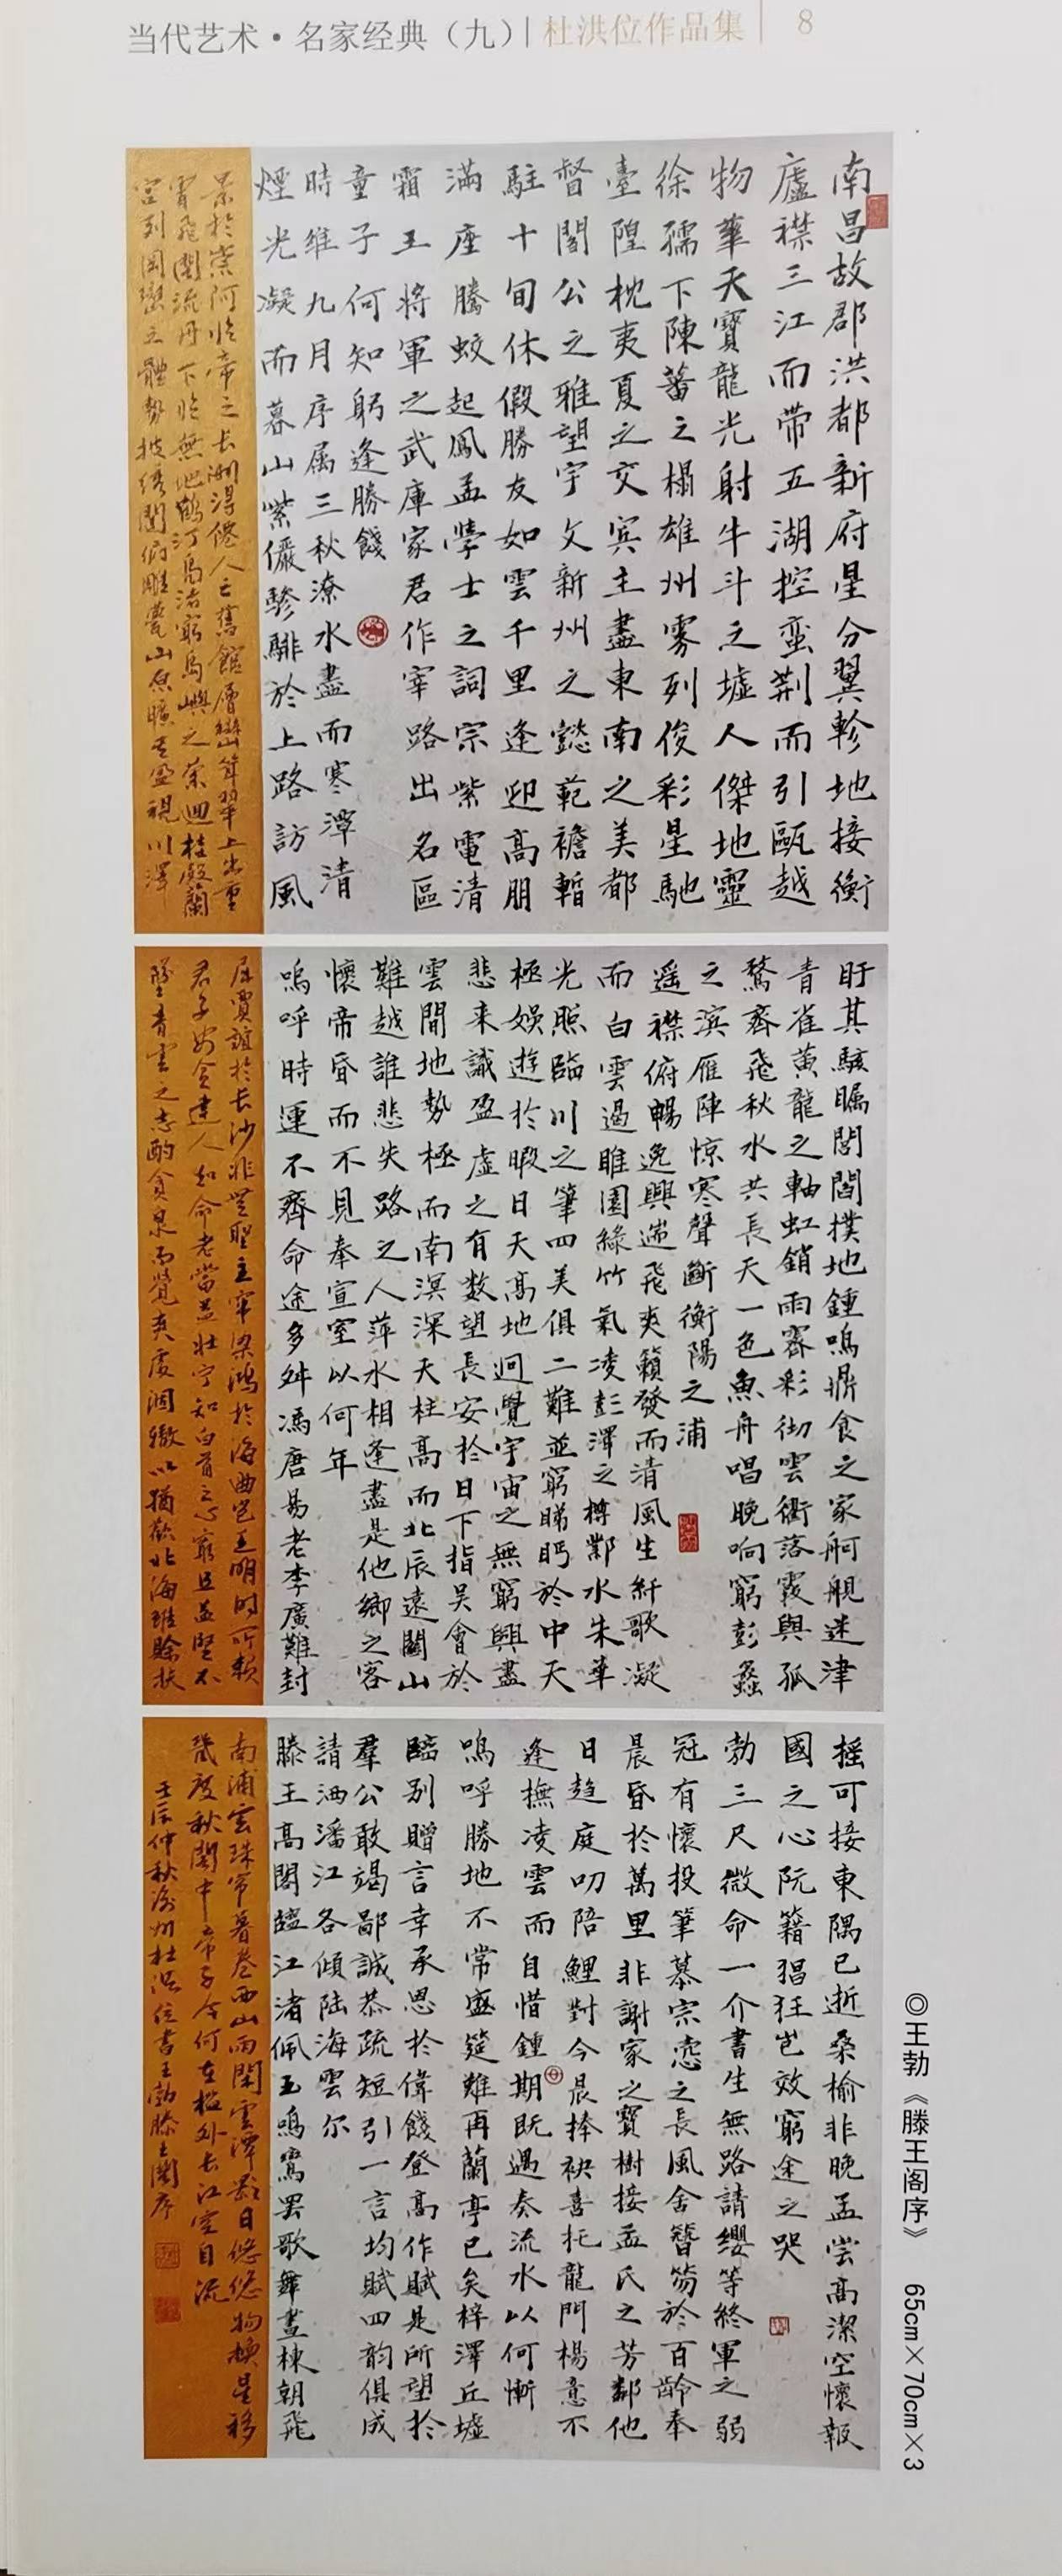 当代艺术·名家经典（九）| 杜洪位作品集 | 8
南昌故郡洪都新府星分翼軫地接衡
廬襟三江而带五湖控蛮荆而引甌越
物華天寳龍光射牛斗之墟人傑地靈
徐孺下陳蕃之榻雄州雾列俊彩星馳
臺隍枕夷夏之交宾主盡東南之美都
督閻公之雅望宇文新州之懿範襜暫
駐十旬休假勝友如雲千里逢迎高朋
滿座騰蛟起鳳孟學士之詞宗紫電清
霜王將軍之武庫家君作宰路出名區
童子何知躬逢勝餞
時维九月序属三秋潦水盡而寒潭清
煙光凝而暮山紫儼驂騑於上路訪風
景於崇阿临帝之长洲得僊人之舊館層巒耸翠上出重
霄飛閣流丹下临無地鶴汀凫渚窮島嶼之萦迴桂殿蘭
宫列岡巒之體勢披綉闥俯雕甍山原曠其盈視川澤
盱其駭瞩閭閻撲地鍾鳴鼎食之家舸艦迷津
青雀黄龍之軸虹銷雨霽彩彻雲衢落霞與孤
鶩齊飛秋水共長天一色魚舟唱晚响窮彭蠡
之滨雁陣惊寒聲斷衡陽之浦
遥襟俯暢逸興遄飛爽籟發而清風生纤歌凝
而白雲遏睢園綠竹氣凌彭澤之樽鄴水朱華
光照臨川之筆四美俱二難並窮睇眄於中天
極娱遊於暇日天高地迥覺宇宙之無窮興盡
悲来識盈虚之有数望長安於日下指吴會於
雲間地勢極而南溟深天柱高而北辰遠關山
難越誰悲失路之人萍水相逢盡是他鄉之客
懷帝昏而不見奉宣室以何年
嗚呼時運不齊命途多舛馮唐易老李廣難封
屈賈誼於长沙非無聖主窜梁鴻於海曲岂乏明时所赖
君子安貧達人知命老當益壮宁知白首之心窮且益堅不
墜青雲之志酌貪泉而覺爽處涸辙以猶歡北海雖賒扶
摇可接東隅已逝桑榆非晚孟尝高潔空懷報
國之心阮籍猖狂岂效窮途之哭
勃三尺微命一介書生無路請纓等終軍之弱
冠有懷投筆慕宗悫之長風舍簪笏於百齡奉
晨昏於萬里非謝家之寶樹接孟氏之芳鄰他
日趋庭叨陪鯉對今晨捧袂喜托龍門楊意不
逢撫凌雲而自惜鍾期既遇奏流水以何慚
嗚呼勝地不常盛筵難再蘭亭已矣梓澤丘墟
臨别贈言幸承恩於偉餞登高作賦是所望於
羣公敢竭鄙誠恭疏短引一言均賦四韵俱成
請洒潘江各傾陆海雲尔
滕王高閣臨江渚佩玉鳴鸞罢歌舞畫棟朝飛
南浦雲珠帘暮卷西山雨閑雲潭影日悠悠物换星移
幾度秋閣中帝子今何在檻外长江空自流
壬辰仲秋渝州杜洪位書王勃滕王閣序
◎王勃《滕王阁序》 65cm×70cm×3